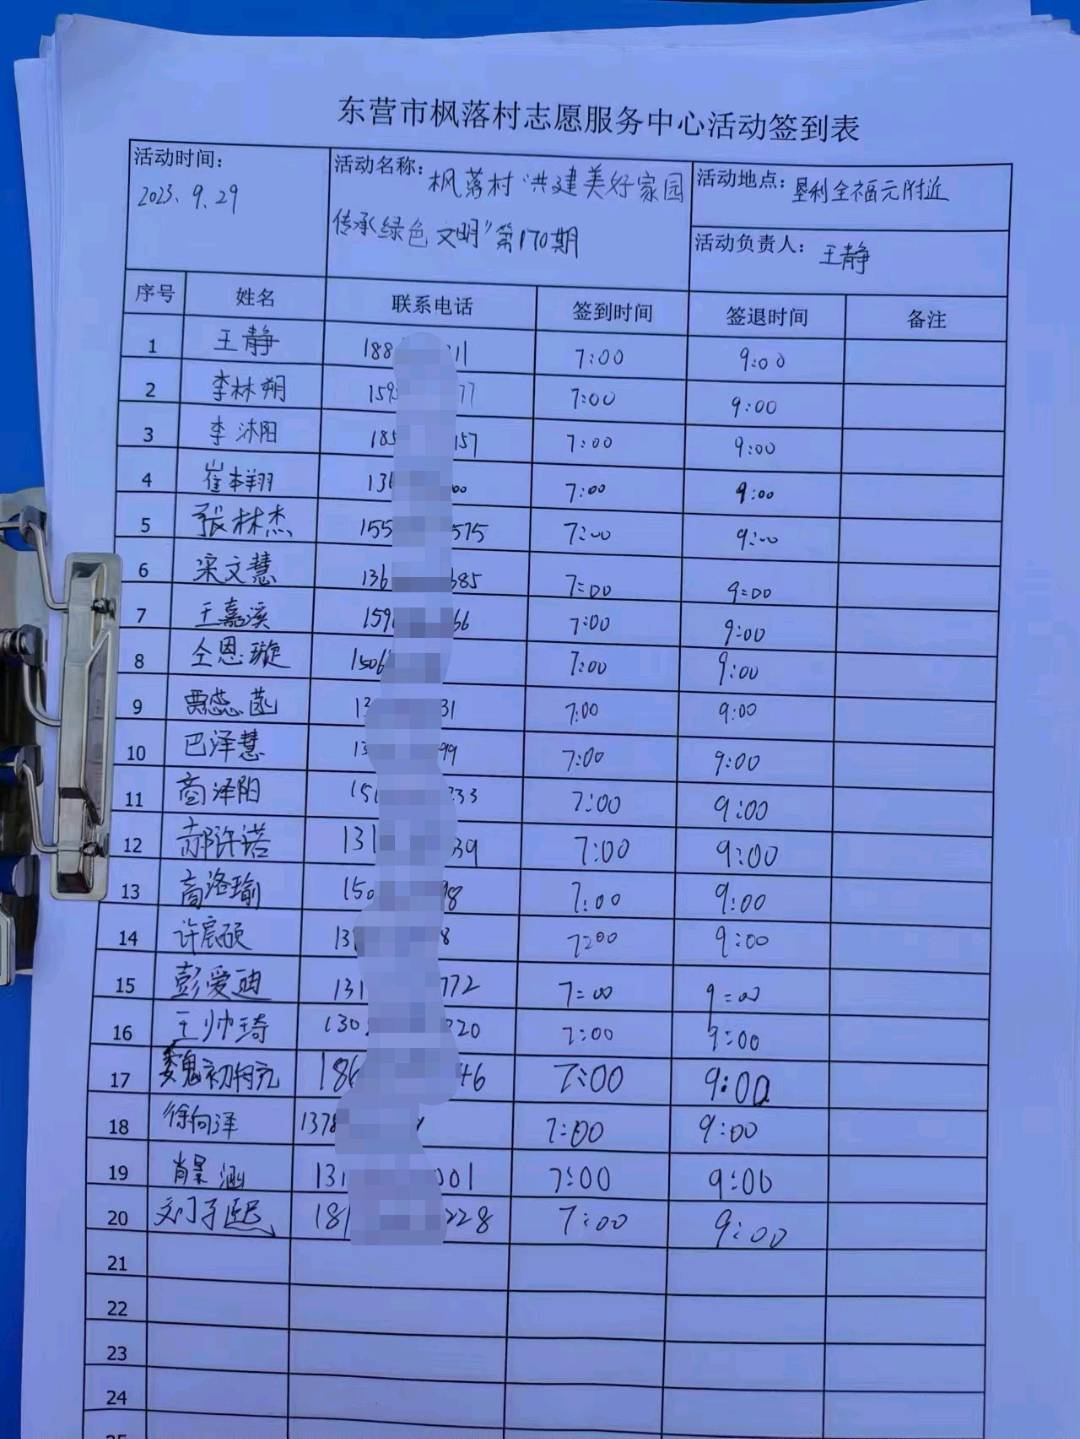 东营市枫落村志愿服务中心活动签到表
活动时间：
2023.9.29
活动名称：枫落村"共建美好家园
传承绿色文明"第170期
活动地点：垦利全福元附近
活动负责人：王静
序号 姓名 联系电话 签到时间 签退时间 备注
1 王静 188 11 7:00 9:00
2 李林朔 159 77 7:00 9:00
3 李沐阳 185 157 7:00 9:00
4 崔本翔 13 00 7:00 9:00
5 张林杰 155 575 7:00 9:00
6 宋文慧 136 685 7:00 9:00
7 王嘉溪 159 66 7:00 9:00
8 仝恩璇 1506 7:00 9:00
9 贾蕊菡 13 31 7:00 9:00
10 巴泽慧 13 99 7:00 9:00
11 商泽阳 150 33 7:00 9:00
12 郝许诺 131 39 7:00 9:00
13 高洛瑜 150 98 7:00 9:00
14 许宸硕 13 8 7:00 9:00
15 彭爱迪 131 772 7:00 9:00
16 王帅琦 130 320 7:00 9:00
17 186 46 7:00 9:00
18 徐向泽 1378 7:00 9:00
19 肖景涵 131 001 7:00 9:00
20 刘子熙 181 228 7:00 9:00
21
22
23
24
25